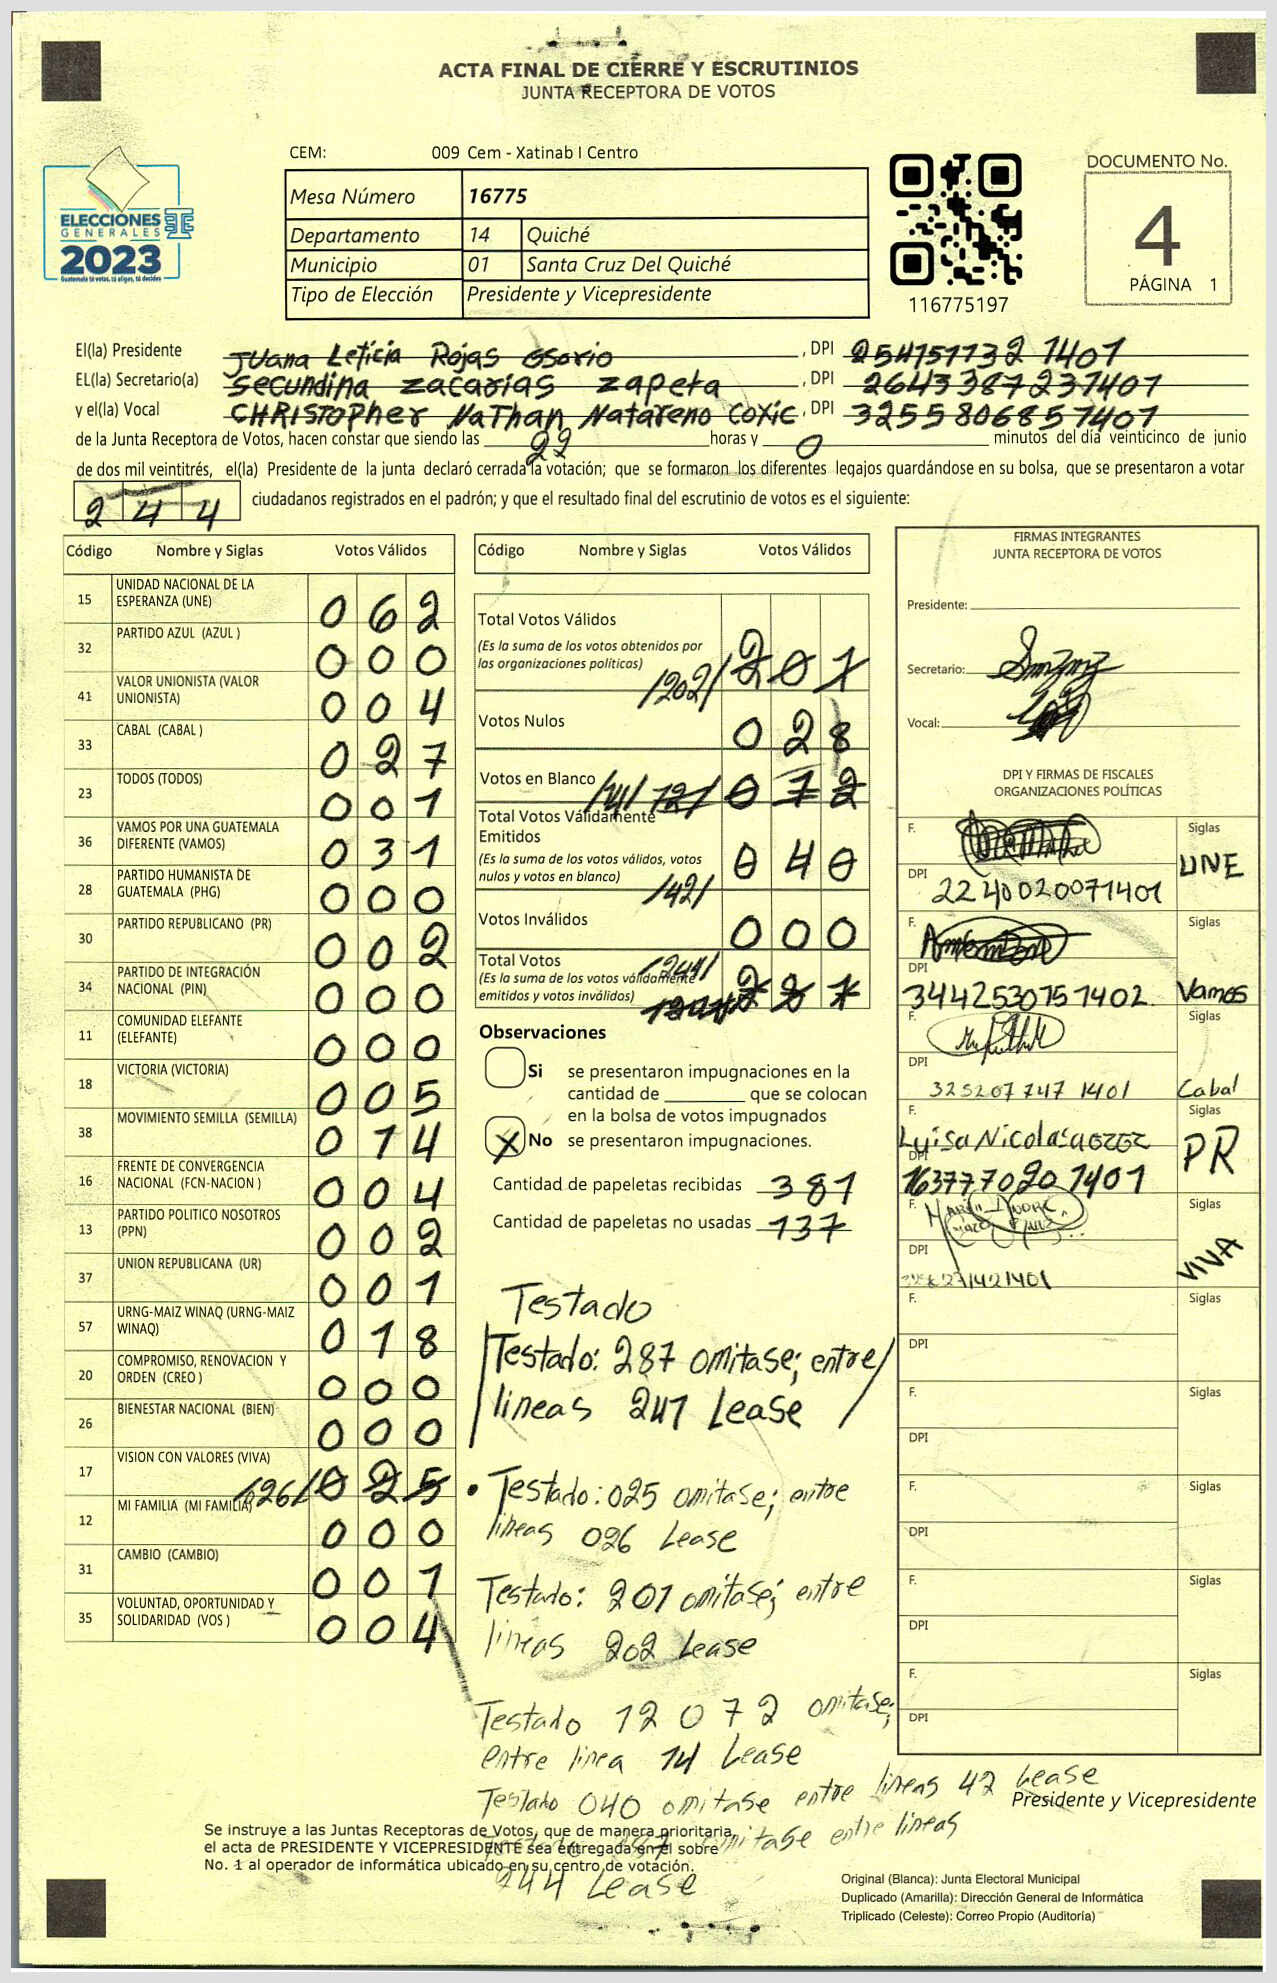 ACTA FINAL DE CIERRE Y ESCRUTINIOS
JUNTA RECEPTORA DE VOTOS
CEM: 009 Cem - Xatinab I Centro
Mesa Número 16775
Departamento 14 Quiché
Municipio 01 Santa Cruz Del Quiché
Tipo de Elección Presidente y Vicepresidente
ELECCIONES
GENERALES
2023
Guatemala tú votas, tú eliges, tú decides
116775197
DOCUMENTO No.
4
PÁGINA 1
El(la) Presidente Juana Leticia Rojas Osorio, DPI 254151732 1401
EL(la) Secretario(a) Secundina zacarias zapeta, DPI 2643387231401
y el(la) Vocal CHRISTOPher NaThan Natareno Coxic, DPI 3255806851401
de la Junta Receptora de Votos, hacen constar que siendo las 22 horas y 0 minutos del día veinticinco de junio
de dos mil veintitrés, el(la) Presidente de la junta declaró cerrada la votación; que se formaron los diferentes legajos guardándose en su bolsa, que se presentaron a votar
244 ciudadanos registrados en el padrón; y que el resultado final del escrutinio de votos es el siguiente:
Código Nombre y Siglas Votos Válidos
15 UNIDAD NACIONAL DE LA ESPERANZA (UNE) 062
32 PARTIDO AZUL (AZUL ) 000
41 VALOR UNIONISTA (VALOR UNIONISTA) 004
33 CABAL (CABAL ) 027
23 TODOS (TODOS) 001
36 VAMOS POR UNA GUATEMALA DIFERENTE (VAMOS) 031
28 PARTIDO HUMANISTA DE GUATEMALA (PHG) 000
30 PARTIDO REPUBLICANO (PR) 002
34 PARTIDO DE INTEGRACIÓN NACIONAL (PIN) 000
11 COMUNIDAD ELEFANTE (ELEFANTE) 000
18 VICTORIA (VICTORIA) 005
38 MOVIMIENTO SEMILLA (SEMILLA) 014
16 FRENTE DE CONVERGENCIA NACIONAL (FCN-NACION ) 004
13 PARTIDO POLITICO NOSOTROS (PPN) 002
37 UNION REPUBLICANA (UR) 001
57 URNG-MAIZ WINAQ (URNG-MAIZ WINAQ) 018
20 COMPROMISO, RENOVACION Y ORDEN (CREO ) 000
26 BIENESTAR NACIONAL (BIEN) 000
17 VISION CON VALORES (VIVA) /26/ 025
12 MI FAMILIA (MI FAMILIA) 000
31 CAMBIO (CAMBIO) 001
35 VOLUNTAD, OPORTUNIDAD Y SOLIDARIDAD (VOS ) 004
Código Nombre y Siglas Votos Válidos
Total Votos Válidos
(Es la suma de los votos obtenidos por
las organizaciones políticas) /202/ 201
Votos Nulos 028
Votos en Blanco /14/ 12/ 072
Total Votos Válidamente
Emitidos
(Es la suma de los votos válidos, votos
nulos y votos en blanco) /42/ 040
Votos Inválidos 000
Total Votos /244/
(Es la suma de los votos válidamente
emitidos y votos inválidos) 287
Observaciones
Si se presentaron impugnaciones en la
cantidad de ________ que se colocan
en la bolsa de votos impugnados
X No se presentaron impugnaciones.
Cantidad de papeletas recibidas 381
Cantidad de papeletas no usadas 137
Testado
/Testado: 287 omitase; entre/
/lineas 241 Lease /
• Testado: 025 omitase; entre
lineas 026 Lease
Testado: 201 omitase; entre
lineas 202 Lease
Testado 12 072 omitase;
entre linea 14 Lease
Testado 040 omitase entre lineas 42 Lease
omitase entre lineas
244 Lease
FIRMAS INTEGRANTES
JUNTA RECEPTORA DE VOTOS
Presidente:
Secretario:
Vocal:
DPI Y FIRMAS DE FISCALES
ORGANIZACIONES POLÍTICAS
F. Siglas
DPI 2240020071401 UNE
F. Siglas
DPI 3442530751402 Vamos
F. Siglas
DPI 325207747 1401 Cabal
F. Luisa Nicolasa Siglas
DPI 1637770201401 PR
F. Siglas
DPI VIVA
F. Siglas
DPI
F. Siglas
DPI
F. Siglas
DPI
F. Siglas
DPI
F. Siglas
DPI
Presidente y Vicepresidente
Se instruye a las Juntas Receptoras de Votos, que de manera prioritaria,
el acta de PRESIDENTE Y VICEPRESIDENTE sea entregada en el sobre
No. 1 al operador de informática ubicado en su centro de votación.
Original (Blanca): Junta Electoral Municipal
Duplicado (Amarilla): Dirección General de Informática
Triplicado (Celeste): Correo Propio (Auditoría)